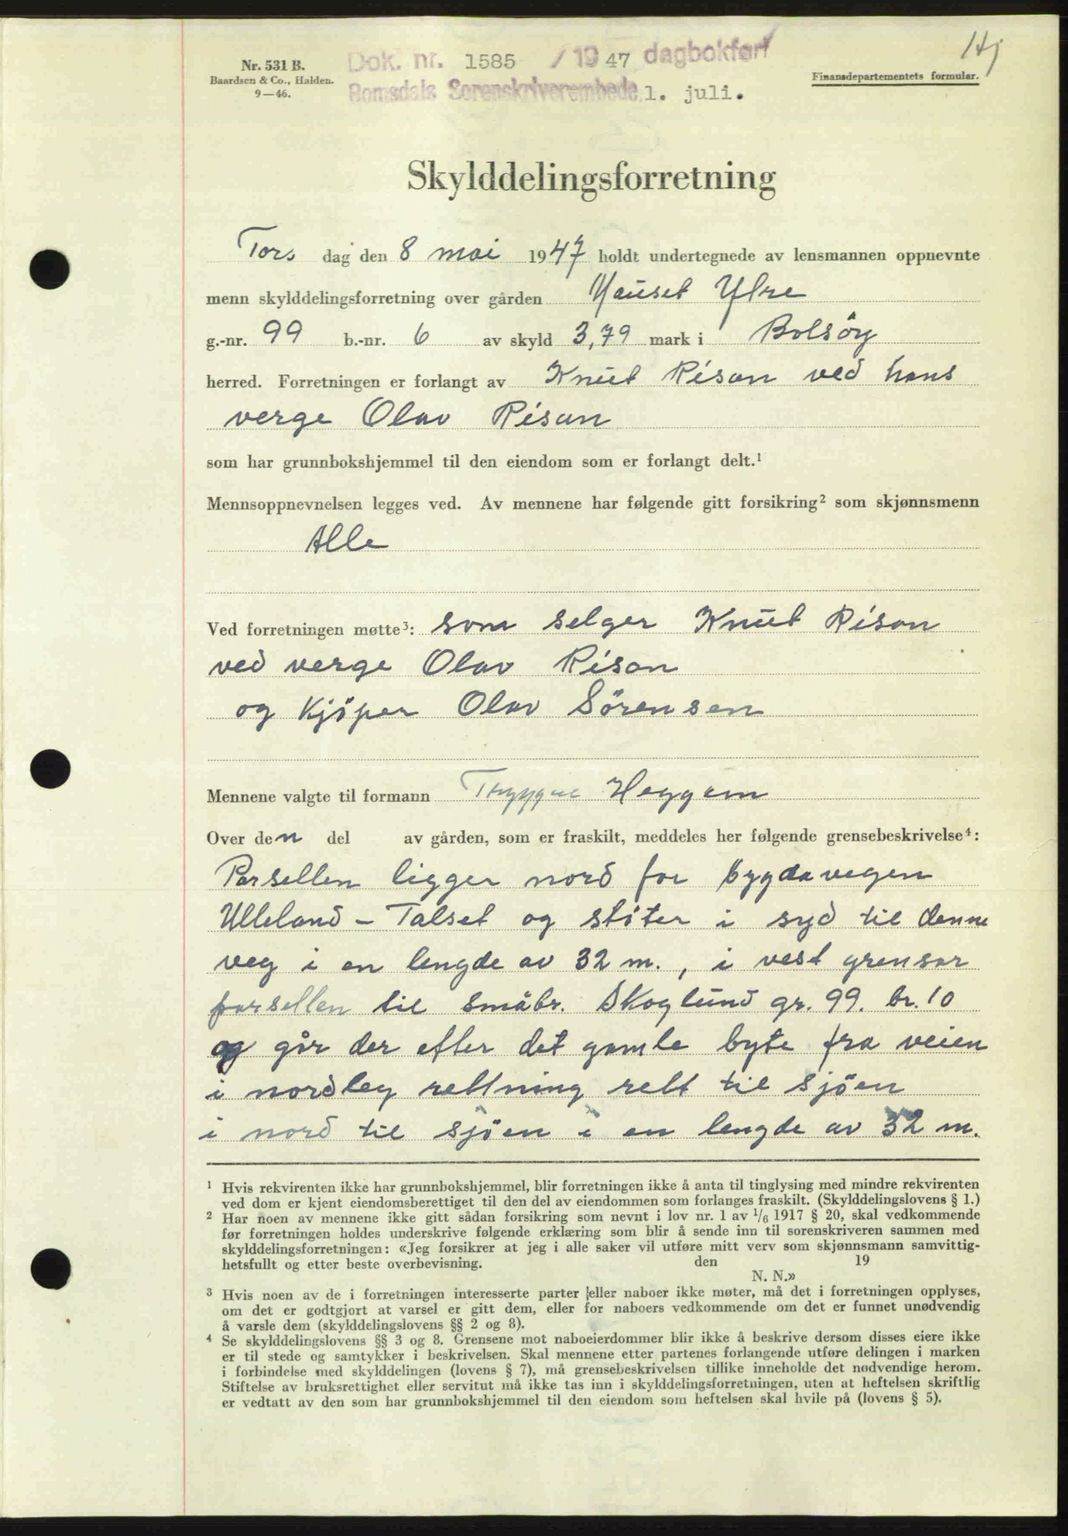 Hj
Nr. 531 B.
Baardsen & Co., Halden.
9—46.
Dok. nr. 1585 /1947 dagbokført
Romsdals Sorenskriverembede 1. juli.
Finansdepartementets formular.
Skylddelingsforretning
Tors dag den 8 mai 1947 holdt undertegnede av lensmannen oppnevnte
menn skylddelingsforretning over gården Hauset Ytre
g.-nr. 99 b.-nr. 6 av skyld 3,79 mark i Bolsöy
herred. Forretningen er forlangt av Knut Risan ved hans
verge Olav Risan
som har grunnbokshjemmel til den eiendom som er forlangt delt.¹
Mennsoppnevnelsen legges ved. Av mennene har følgende gitt forsikring² som skjønnsmenn
Alle
Ved forretningen møtte³: som selger Knut Risan
ved verge Olav Risan
og Kjöper Olav Sörensen
Mennene valgte til formann Tryggve Heggem
Over den del av gården, som er fraskilt, meddeles her følgende grensebeskrivelse⁴:
Parsellen ligger nord for bygdavegen
Ulleland – Talset og stöter i syd til denne
veg i en lengde av 32 m., i vest grenser
parsellen til småbr. Skoglund gr. 99. br. 10
og går der efter det gamle byte fra veien
i nordleg rettning rett til sjöen
i nord til sjöen i en lengde av 32 m.
¹ Hvis rekvirenten ikke har grunnbokshjemmel, blir forretningen ikke å anta til tinglysing med mindre rekvirenten
ved dom er kjent eiendomsberettiget til den del av eiendommen som forlanges fraskilt. (Skylddelingslovens § 1.)
² Har noen av mennene ikke gitt sådan forsikring som nevnt i lov nr. 1 av 1/6 1917 § 20, skal vedkommende
før forretningen holdes underskrive følgende erklæring som blir å sende inn til sorenskriveren sammen med
skylddelingsforretningen: «Jeg forsikrer at jeg i alle saker vil utføre mitt verv som skjønnsmann samvittig-
hetsfullt og etter beste overbevisning. den 19
N. N.»
³ Hvis noen av de i forretningen interesserte parter eller naboer ikke møter, må det i forretningen opplyses,
om det er godtgjort at varsel er gitt dem, eller for naboers vedkommende om det er funnet unødvendig
å varsle dem (skylddelingslovens §§ 2 og 8).
⁴ Se skylddelingslovens §§ 3 og 8. Grensene mot naboeierdommer blir ikke å beskrive dersom disses eiere ikke
er til stede og samtykker i beskrivelsen. Skal mennene etter partenes forlangende utføre delingen i marken
i forbindelse med skylddelingen (lovens § 7), må grensebeskrivelsen tillike inneholde det nødvendige herom.
Stiftelse av bruksrettighet eller servitut må ikke tas inn i skylddelingsforretningen, uten at heftelsen skriftlig
er vedtatt av den som har grunnbokshjemmel til den eiendom som heftelsen skal hvile på (lovens § 5).